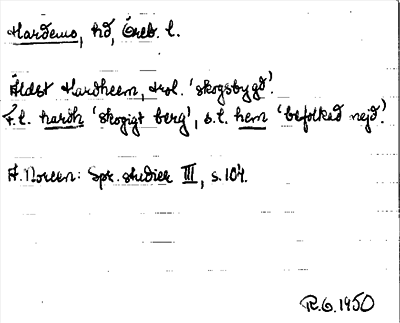 Hardemo, hd, Öreb. l.
Äldst Hardheem, trol. 'skogsbygd'.
F.l. hardh 'skogigt berg', s.l. hem 'befolkad nejd'.
A. Noreen: Spr. studier III, s. 104.
R.G. 1950